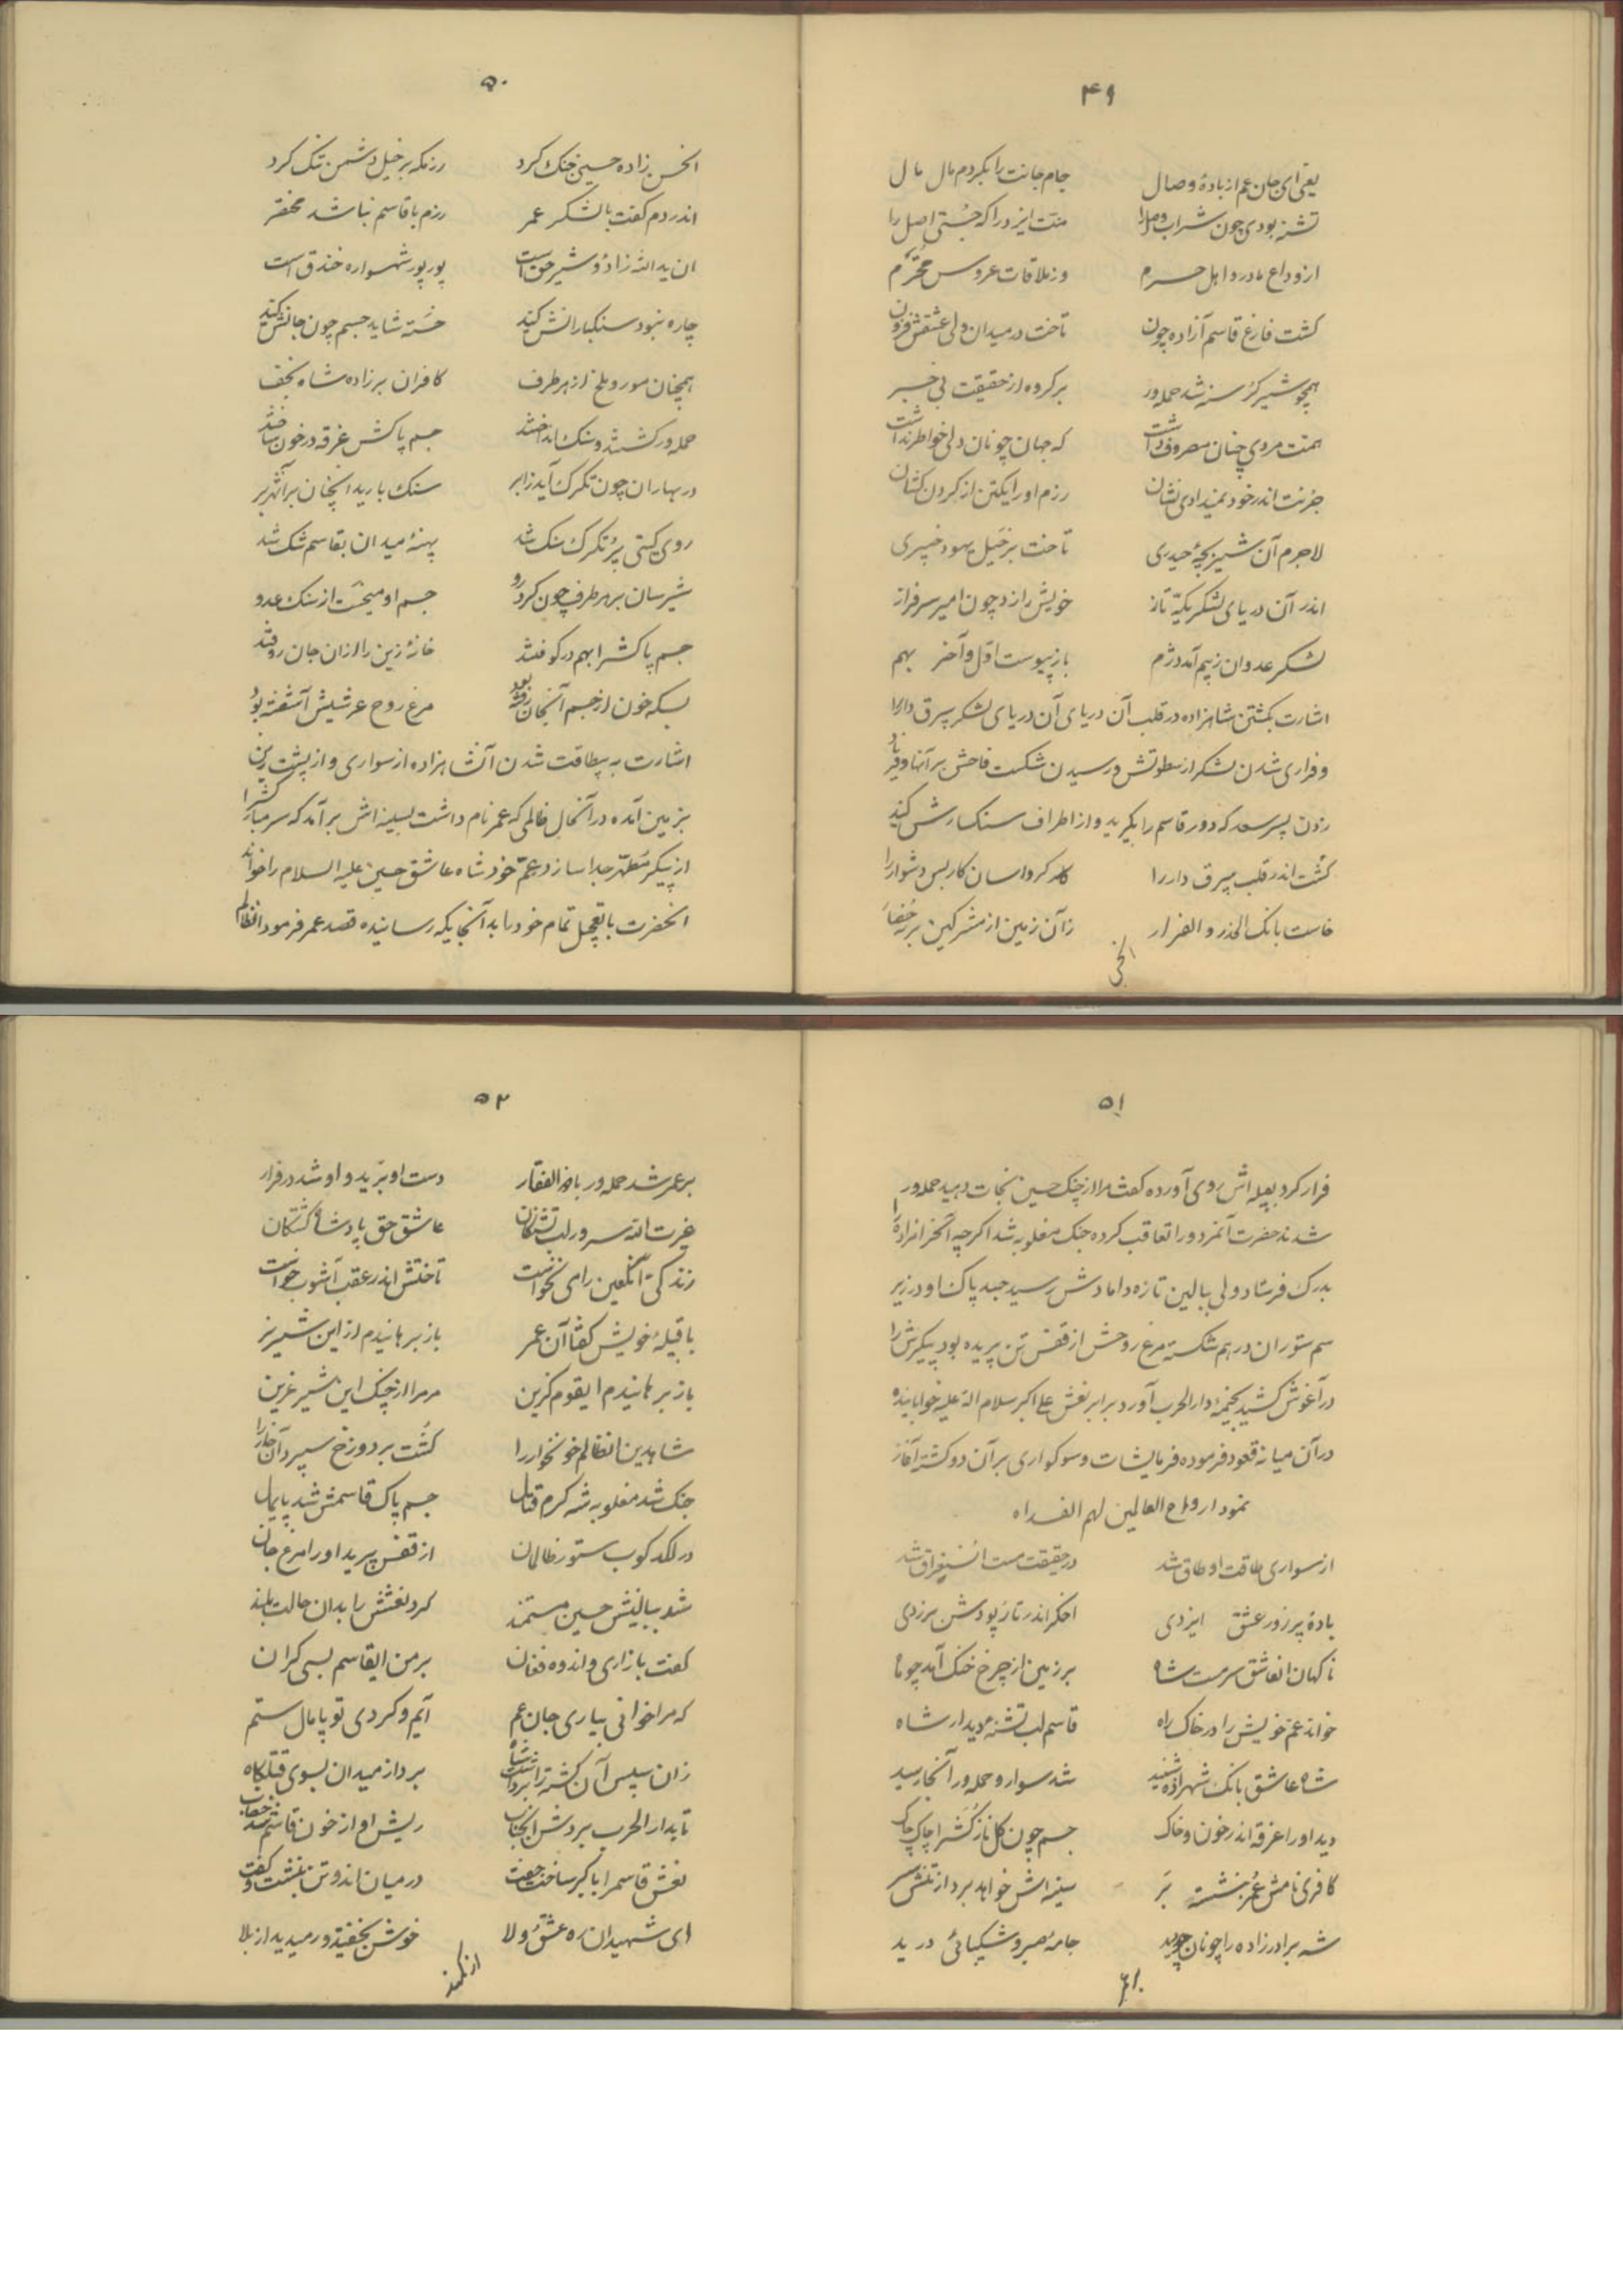 ۴۹
یعنی ای جان عم از بادهٔ وصال جام جانت را بکردم مال مال
تشنه بودی چون شراب وصل را منت ایزد را که جستی اصل را
از وداع مادر و اهل حرم وز ملاقات عروس محترم
گشت فارغ قاسم آزاده چون تاخت در میدان ولی عشقش فزون
همچو شیر گرسنه شد حمله‌ور بر گروه از حقیقت بی خبر
همت مردی چنان مصروف داشت که جهان چونان دلی خواطر نداشت
جزئت اندر خود نمیدادی نشان رزم او را یکتن از گردن کشان
لاجرم آن شیر بچهٔ حیدری تاخت بر خیل یهود خیبری
اندر آن دریای لشکر یکه تاز خویش را زد چون امیر سرفراز
لشکر عدوان زبیم آمد دژم باز پیوست اول و آخر بهم
اشارت بکشتن شاهزاده در قلب آن دریای آن دریای لشکر بیرق دار را
و فراری شدن لشکر از سطوتش و رسیدن شکست فاحش بر آنها و فریاد
زدن پسر سعد که دور قاسم را بگیرید و از اطراف سنگسارش کنید
کشت اندر قلب بیرق دار را کرد اسان کار بس دشوار را
خاست بانگ الحذر و الفرار زآن زمین از مشرکین
۵۰
الحسن زاده حسینی جنگ کرد رزمگه بر خیل دشمن تنگ کرد
اندر دم گفت با لشکر عمر رزم با قاسم نباشد مختصر
ان ید الله زاده و شیر حق است پور پور شهسواره خندق است
چاره نبود سنگبارانش کنید خسته شاید جسم چون جانش کنید
همچنان مور و ملخ از هر طرف کافران بر زاده شاه نجف
حمله‌ور گشتند و سنگ انداختند جسم پاکش غرقه در خون ساختند
در بهاران چون تگرگ آید ز ابر سنگ بارید انچنان بر آن هژبر
روی گیتی پر تگرگ سنگ شد پهنهٔ میدان بقاسم تنگ شد
شیرسان بر هر طرف چون کرد رو جسم او میخست از سنگ عدو
جسم پاکش را بهم در کوفتند خانهٔ زین را از ان جان روفتند
بسکه خون از جسم آنجان رفته بود مرغ روح عرشیش آشفته بود
اشارت به بیطاقت شدن آنشاهزاده از سواری و از پشت زین
بزمین آمده در آنحال ظالمی که عمر نام داشت بسینه اش برآمد که سر مبارکشرا
از پیکر مطهر جدا سازد عم خود شاه عاشق حسین علیه السلام را خوانده
انحضرت با تعجیل تمام خود را بد آنجایگه رسانیده قصد عمر فرمود انظالم
۵۱
فرار کرد بقبیله اش روی آورده گفت مرا از چنگ حسین نجات دهید حمله‌ور
شدند حضرت آنمزدور را تعاقب کرده جنگ مغلوبه شد اگرچه آنحرامزاده را
بدرک فرستاد ولی ببالین تازه دامادش رسید جسد پاک او در زیر
سم ستوران در هم شکسته مرغ روحش از قفس تن پریده بود پیکرش را
در آغوش کشید بخیمهٔ دار الحرب آورد برابر نعش علی اکبر سلام الله علیه خوابانیده
در آن میانه قعود فرموده فرمایشات و سوگواری بر آن دو کشته آغاز
نمود ارواح العالمین لهم الفداء
از سواری طاقت او طاق شد در حقیقت مست استغراق شد
بادهٔ پر زور عشق ایزدی اخگر اندر تار پودش برزدی
ناگهان انعاشق سرمست شاه بر زمین از چرخ خنگ آمد چو ماه
خواند عم خویش را در خاک راه قاسم لب تشنهٔ دیدار شاه
شاه عاشق بانگ شهزاده شنید شد سوار و حمله‌ور آنجا رسید
دید او را غرقه اندر خون و خاک جسم چون گل نازکش را چاک چاک
کافری نامش عمر بنشسته بر سینه اش خواهد برد از تنش سر
شه برادرزاده را چونان چو دید جامهٔ صبر و شکیبائی درید
۵۲
بر عمر شد حمله‌ور با ذوالفقار دست او ببرید و او شد در فرار
غیرت الله سرور لب تشنگان عاشق حق پادشاه کشتگان
زندگی آنلعین را می نخواست تاختش اندر عقب آشوب خواست
با قبیلهٔ خویش گفتا آن عمر باز برهانیدم از این شیر نر
باز برهانیدم ایقوم گزین مر مرا از چنگ این شیر غرین
شاه دین انظالم خونخوار را کشت بر دوزخ سپرد آن خار را
جنگ شد مغلوبه شه گرم قتال جسم پاک قاسمش شد پایمال
در لگدکوب ستور ظالمان از قفس پرید او را مرغ جان
شد ببالینش حسین مستمند کرد نعشش را بدان حالت بلند
گفت با زاری و اندوه و فغان بر من ایقاسم بسی گران
که مرا خوانی بیاری جان عم آیم و گردی تو پامال ستم
زان سپس آن کشته را برداشت شاه برد از میدان بسوی قتلگاه
تا بدار الحرب بردش آنجناب ریش او از خون قاسم شد خضاب
نعش قاسم را با کبر ساخت جفت در میان اندو تن بنشست و گفت
ای شهیدان ره عشق و ولا خوش بخفتید و رمیدید از بلا